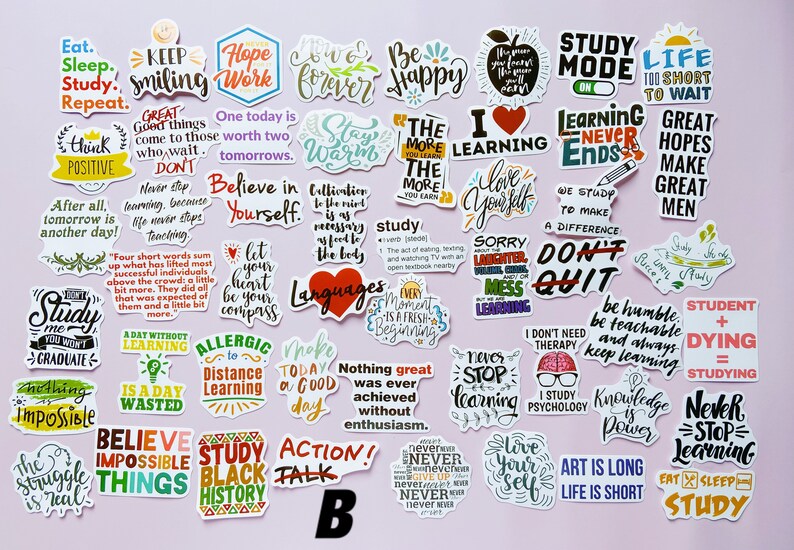 Eat.
Sleep.
Study.
Repeat.
KEEP
smiling
NEVER
Hope
Work
Now &
forever
Be
Happy
The more
you learn
The more
you'll
earn
STUDY
MODE
ON
LIFE
TOO SHORT
TO WAIT
think
POSITIVE
GREAT
Good things
come to those
who wait
DON'T
One today is
worth two
tomorrows.
Stay
Warm
THE
MORE
YOU LEARN
THE
MORE
YOU EARN
I
LEARNING
Learning
NEVER
ENDS
GREAT
HOPES
MAKE
GREAT
MEN
After all,
tomorrow is
another day!
Never stop
learning, because
life never stops
teaching.
Believe in
Yourself.
Cultivation
to the mind
is as
necessary
as food to
the body
love
Yourself
WE STUDY
TO MAKE
A DIFFERENCE
"Four short words sum
up what has lifted most
successful individuals
above the crowd: a little
bit more. They did all
that was expected of
them and a little bit
more."
let
your
heart
be your
compass
study
verb [stede]
1 The act of eating, texting,
and watching TV with an
open textbook nearby
SORRY
ABOUT THE
LAUGHTER,
VOLUME, CHAOS,
AND/OR
MESS
BUT WE ARE
LEARNING
DON'T
QUIT
Study
Study
Until
Study
DON'T
Study
me
YOU WON'T
GRADUATE
Languages
EVERY
Moment
IS A FRESH
Beginning
be humble,
be teachable
and always
keep learning
STUDENT
+
DYING
=
STUDYING
A DAY WITHOUT
LEARNING
IS A DAY
WASTED
ALLERGIC
to
Distance
Learning
make
TODAY
a GOOD
day
Nothing great
was ever
achieved
without
enthusiasm.
never
STOP
learning
I DON'T NEED
THERAPY
I STUDY
PSYCHOLOGY
Knowledge
is
Power
nothing
is
impossible
Never
STOP
Learning
The
struggle
is real
BELIEVE
IMPOSSIBLE
THINGS
STUDY
BLACK
HISTORY
ACTION!
TALK
never
never never
NEVER
never
GIVE UP
never NEVER
NEVER
never
NEVER
Love
Your
self
ART IS LONG
LIFE IS SHORT
EAT SLEEP
STUDY
B